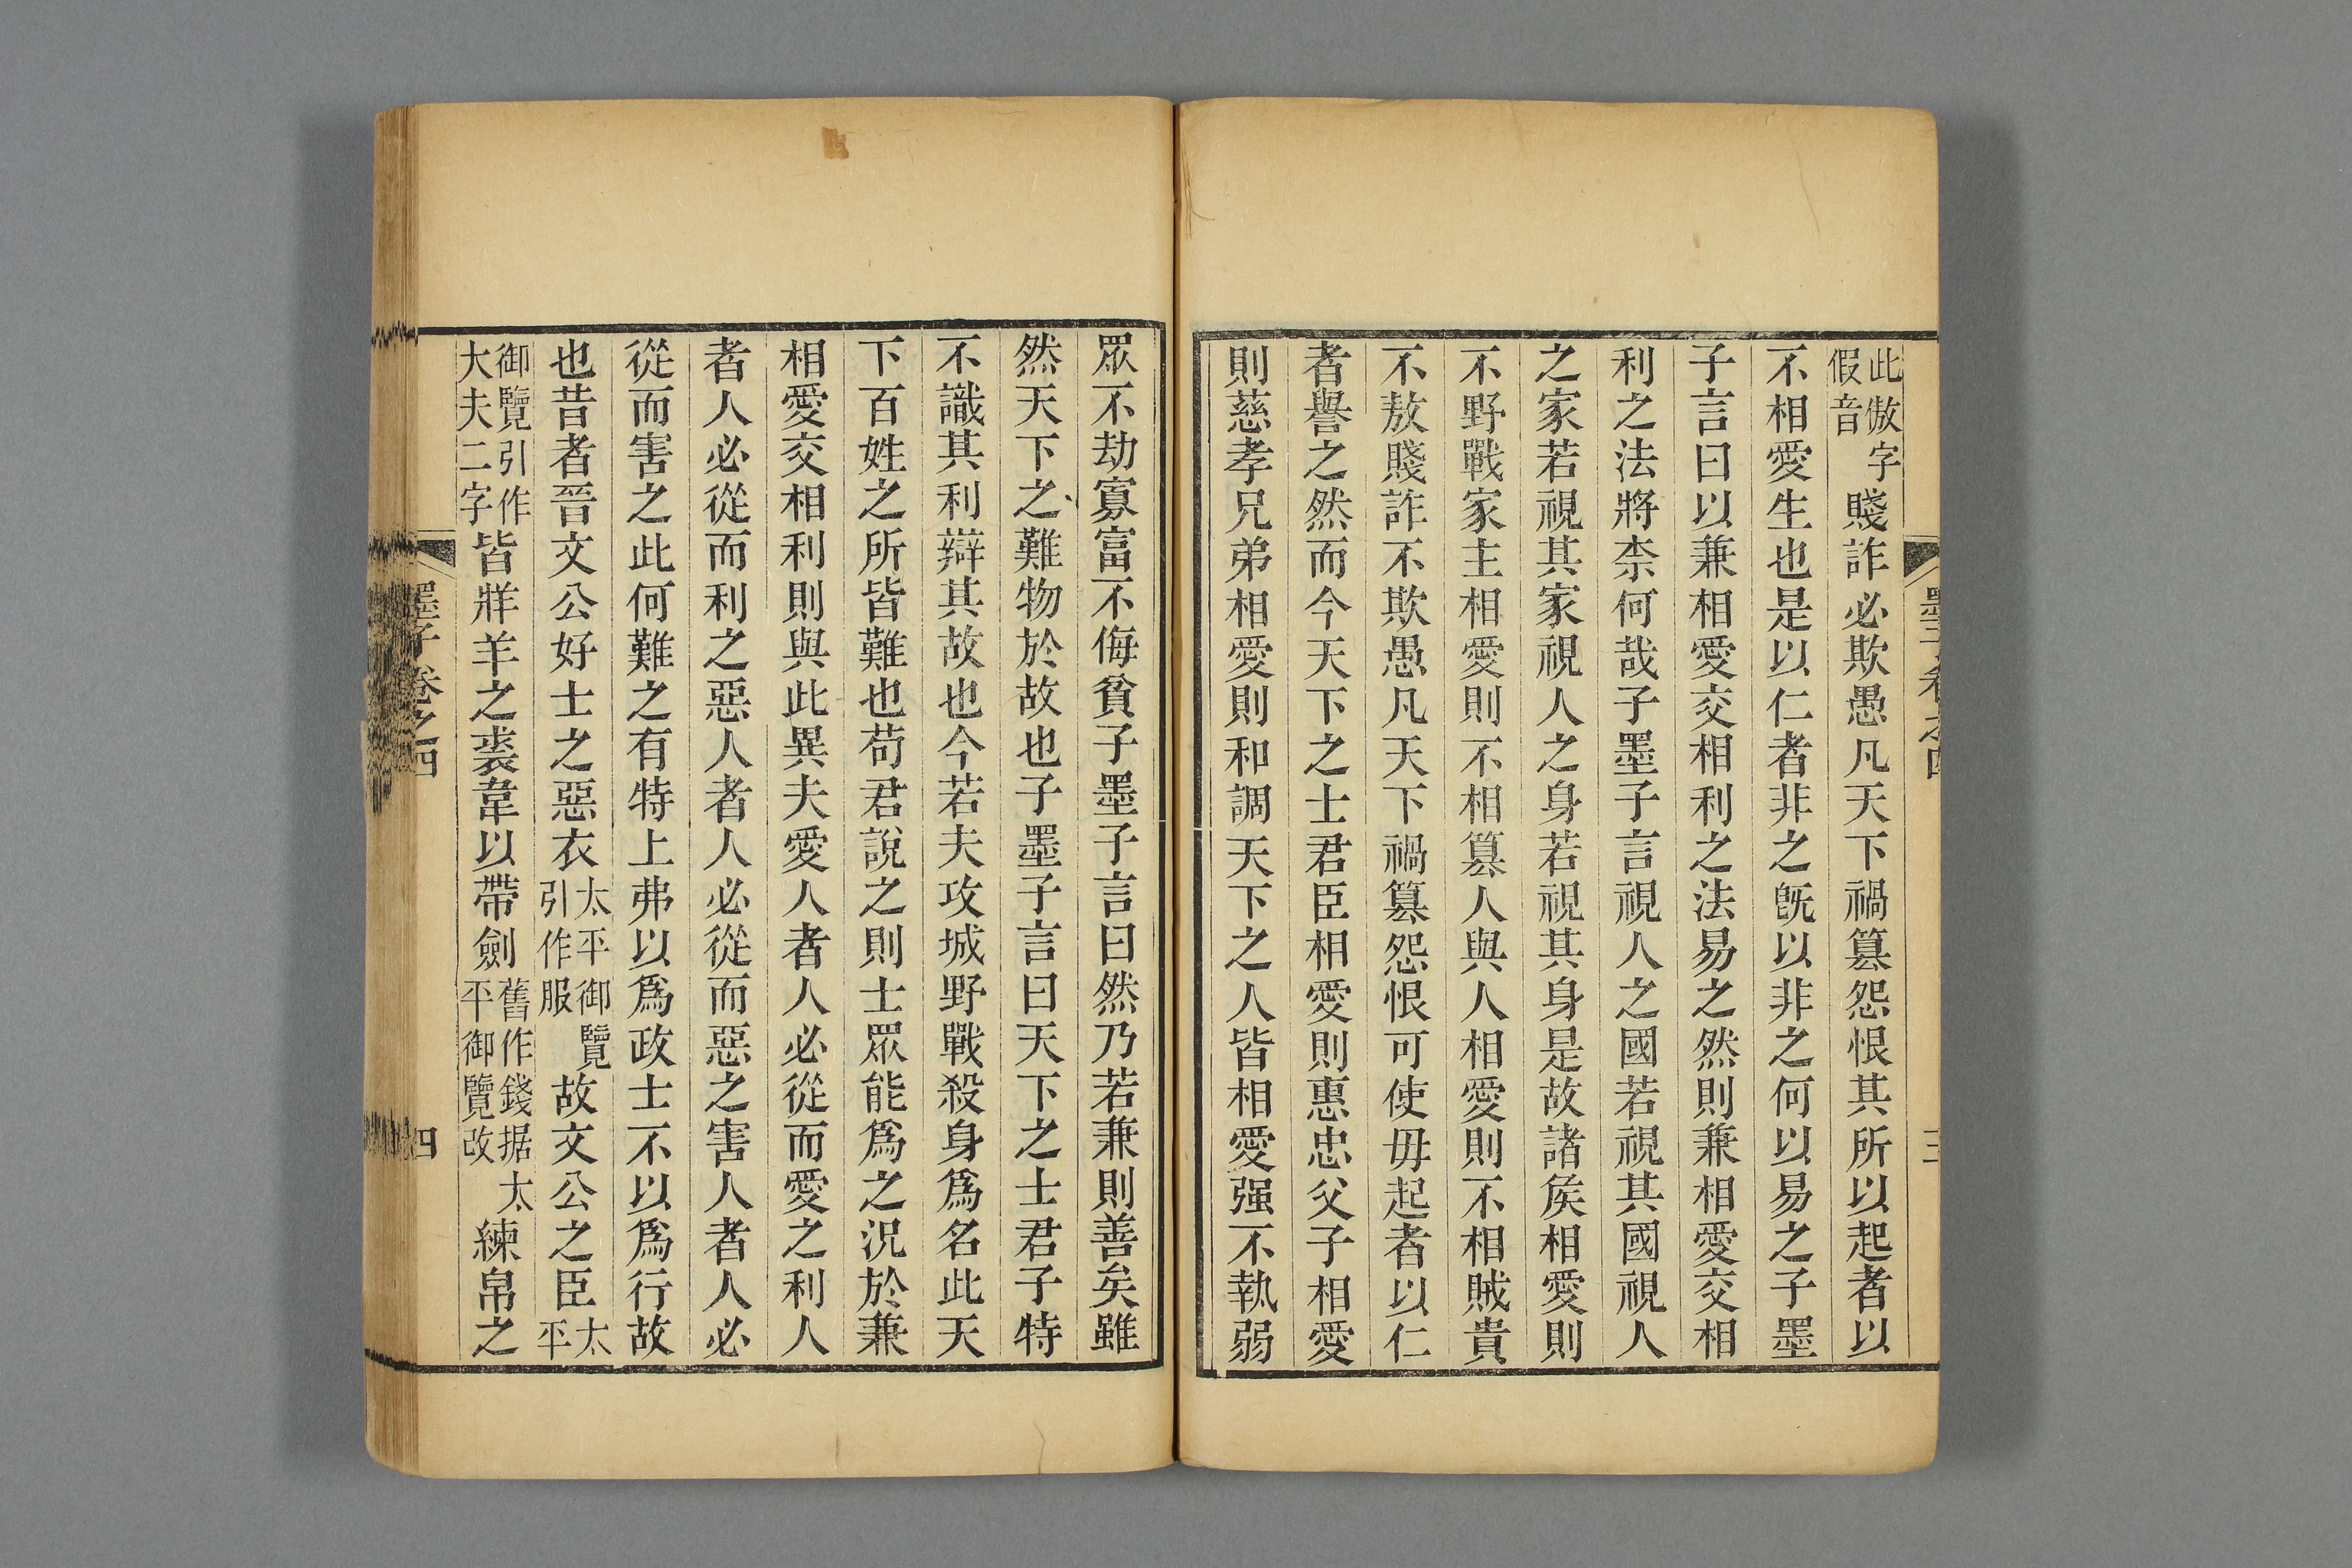 此傲字假音賤詐必欺愚凡天下禍篡怨恨其所以起者以
不相愛生也是以仁者非之旣以非之何以易之子墨
子言曰以兼相愛交相利之法易之然則兼相愛交相
利之法將柰何哉子墨子言視人之國若視其國視人
之家若視其家視人之身若視其身是故諸矦相愛則
不野戰家主相愛則不相篡人與人相愛則不相賊貴
不敖賤詐不欺愚凡天下禍篡怨恨可使毋起者以仁
者譽之然而今天下之士君臣相愛則惠忠父子相愛
則慈孝兄弟相愛則和調天下之人皆相愛强不執弱
眾不劫寡富不侮貧子墨子言曰然乃若兼則善矣雖
然天下之難物於故也子墨子言曰天下之士君子特
不識其利辯其故也今若夫攻城野戰殺身爲名此天
下百姓之所皆難也苟君說之則士眾能爲之況於兼
相愛交相利則與此異夫愛人者人必從而愛之利人
者人必從而利之惡人者人必從而惡之害人者人必
從而害之此何難之有特上弗以爲政士不以爲行故
也昔者晉文公好士之惡衣太平御覽引作服故文公之臣太平
御覽引作大夫二字皆牂羊之裘韋以帶劍舊作錢据太平御覽改練帛之
墨子卷之四
四